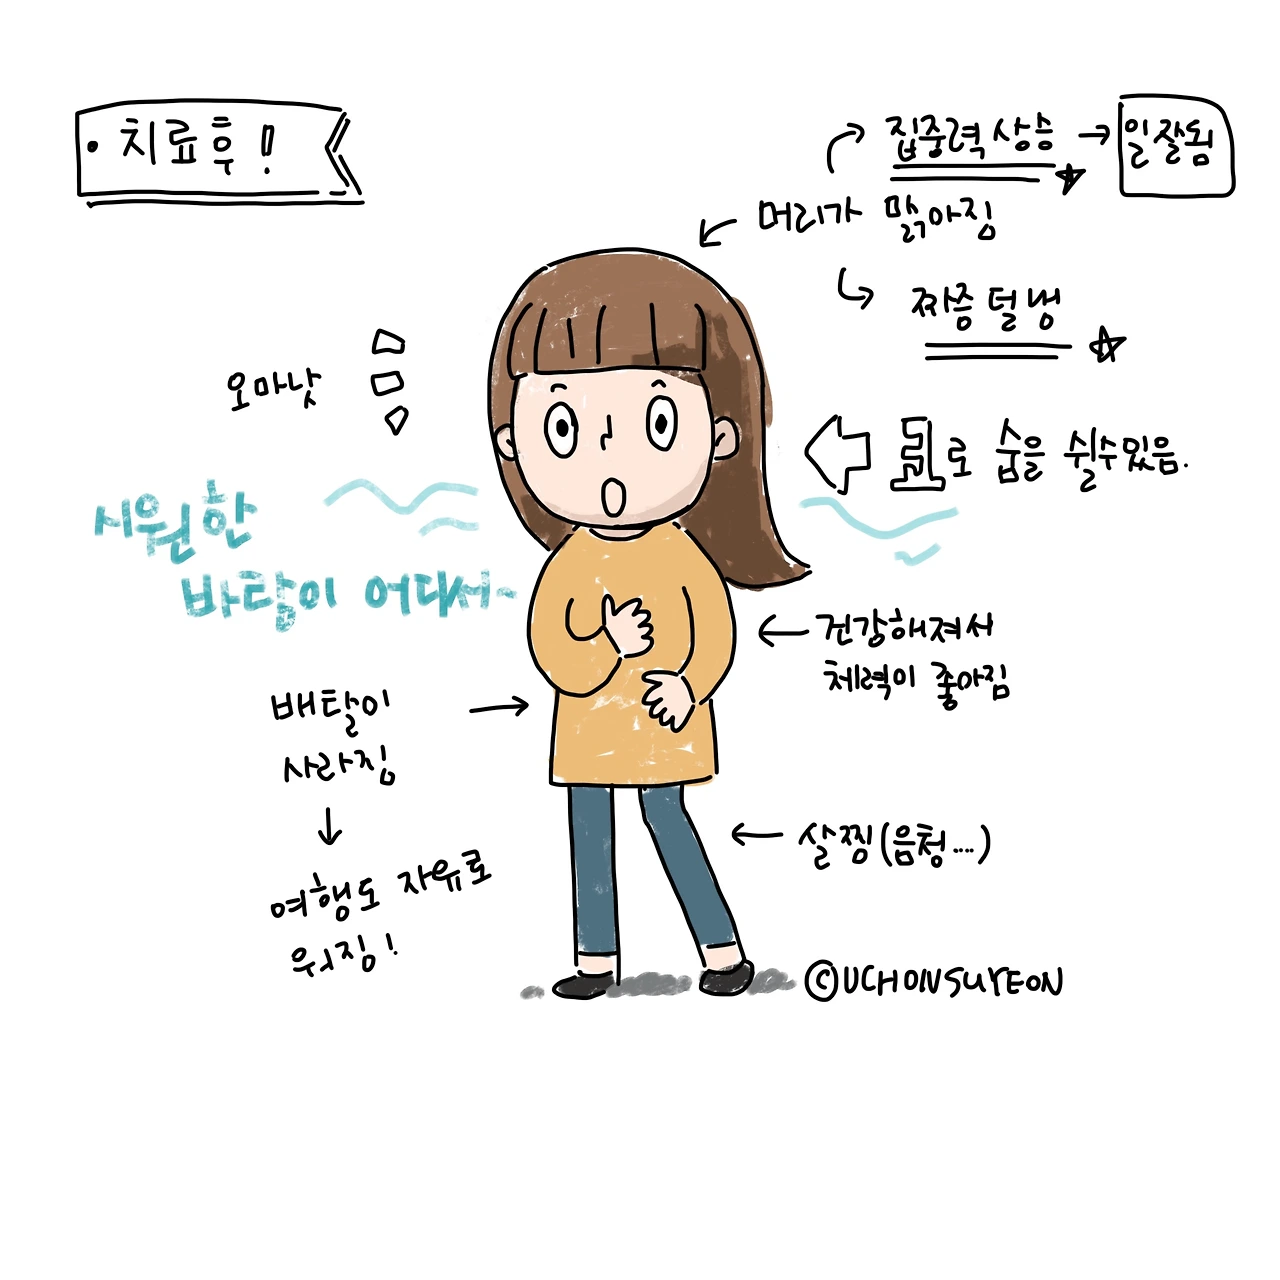 • 치료후!
집중력 상승 → 일잘됨
머리가 맑아짐
짜증 덜 냄
오마낫
코로 숨을 쉴수있음.
시원한
바람이 어디서~
건강해져서
체력이 좋아짐
배탈이
사라짐
여행도 자유로
워짐!
살찜(음청....)
©UCHONSUYEON